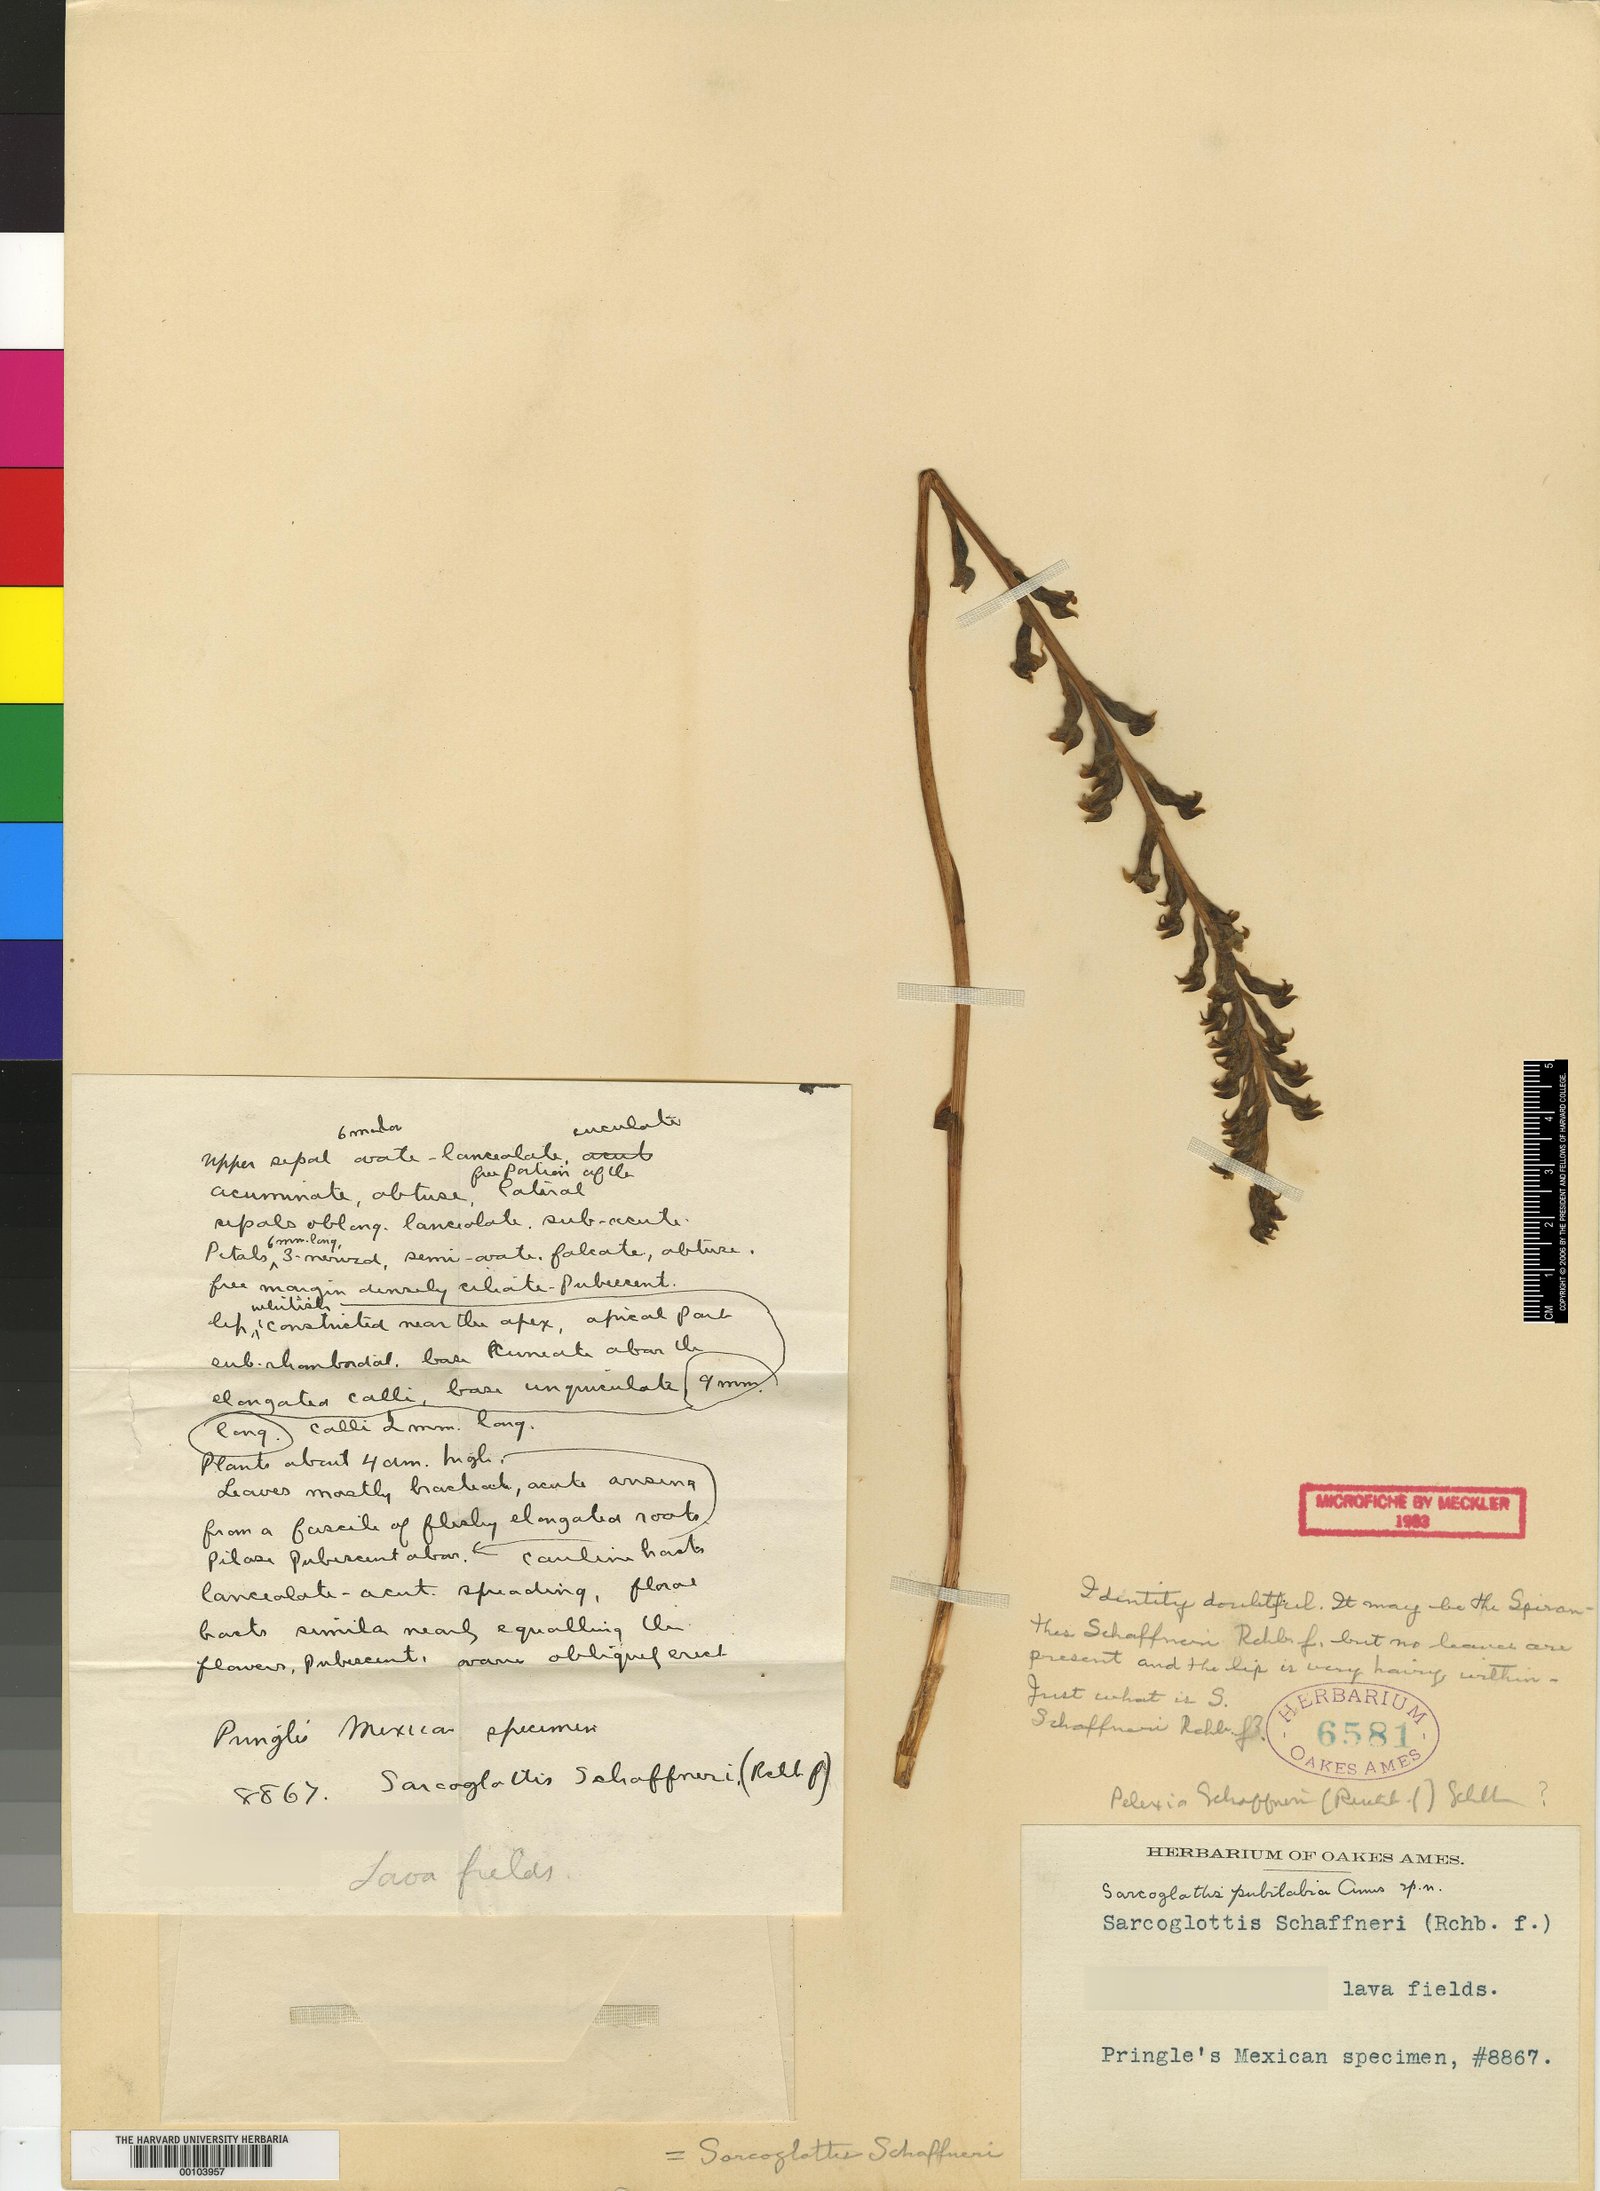 6 mm. long
cuculate
Upper sepal ovate-lanceolate, acute
free portion of the
acuminate, obtuse, lateral
sepals oblong-lanceolate, sub-acute.
6 mm. long,
Petals, 3-nerved, semi-ovate-falcate, obtuse,
free margin densely ciliate-pubescent.
whitish
lip, constricted near the apex, apical part
sub-rhomboidal. base cuneate above the
elongated calli, base unguiculate, 9 mm.
long. calli 2 mm. long.
Plants about 4 dm. high.
Leaves mostly acute arising
from a fascicle of fleshy elongated roots
Pilose pubescent above. cauline bracts
lanceolate-acute spreading, floral
bracts similar nearly equalling the
flowers, pubescent, obliquely erect
Pringle's Mexican specimen
8867. Sarcoglottis Schaffneri, (Rchb f)
Lava fields.
MICROFICHE BY MECKLER
1983
Identity doubtful. It may be the Spiran-
thes Schaffneri Rchb. f. but no leaves are
present and the lip is very hairy within-
Just what is S.
Schaffneri Rchb. f?
HERBARIUM
6581
OAKES AMES
Pelexia Schaffneri (Reichb. f.) Schltr ?
HERBARIUM OF OAKES AMES.
Sarcoglottis pubilabia Ames sp. n.
Sarcoglottis Schaffneri (Rchb. f.)
lava fields.
Pringle's Mexican specimen, #8867.
= Sarcoglottis Schaffneri
THE HARVARD UNIVERSITY HERBARIA
00103957
CM 1 2 3 4 5
COPYRIGHT © 2006 BY THE PRESIDENT AND FELLOWS OF HARVARD COLLEGE.